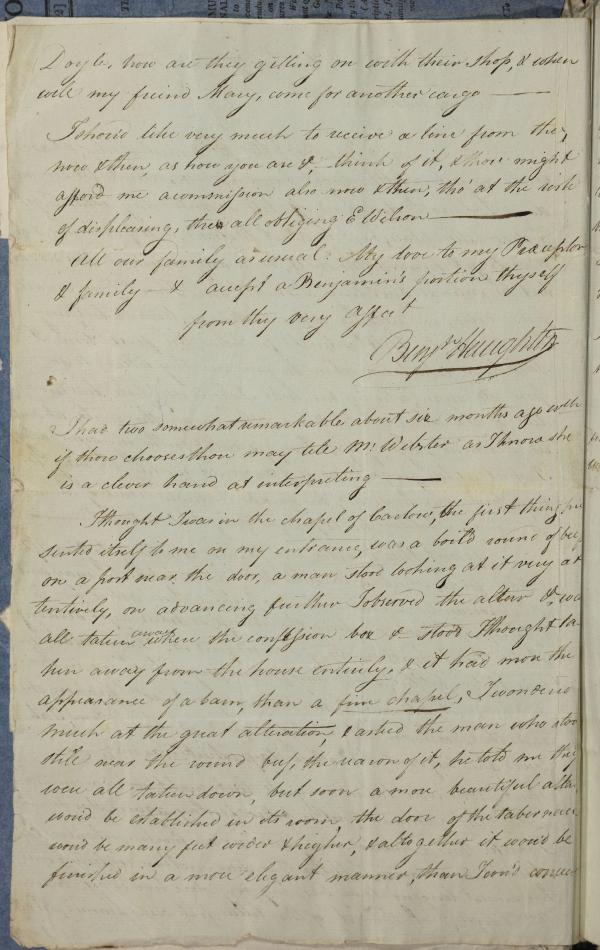 Doyle, how are they getting on with their shop, & when
will my friend Mary, come for another cargo —
I shou'd like very much to receive a line from thee,
now & then, as how you are &c, think of it, & thou might
afford me a commission also now & then, tho' at the risk
of displeasing, the all obliging E Wilson —
All our family as usual: My love to my Preceptor
& family — & accept a Benjamin's portion thyself
from thy very affect
Benjn Haughton
I had two somewhat remarkable about six months ago with
if thou chooses thou may tell Mr Webster as I know she
is a clever hand at interpreting —
I thought I was in the chapel of Carlow, the first thing pre
sented itself to me on my entrance, was a boil'd round of beef
on a post near the door, a man stood looking at it very at
tentively, on advancing further I observed the alter &c, was
all taken away where the confession box & stood I thought ta
ken away from the house entirely, & it had more the
appearance of a barn, than a fine chapel, I wondered
much at the great alteration, & asked the man who stood
still near the round beef, the reason of it, he told me they
were all taken down, but soon a more beautiful alter
wou'd be established in its room, the door of the tabernacle
wou'd be many feet wider & higher, & altogether it wou'd be
finished in a more elegant manner, than I cou'd conceive